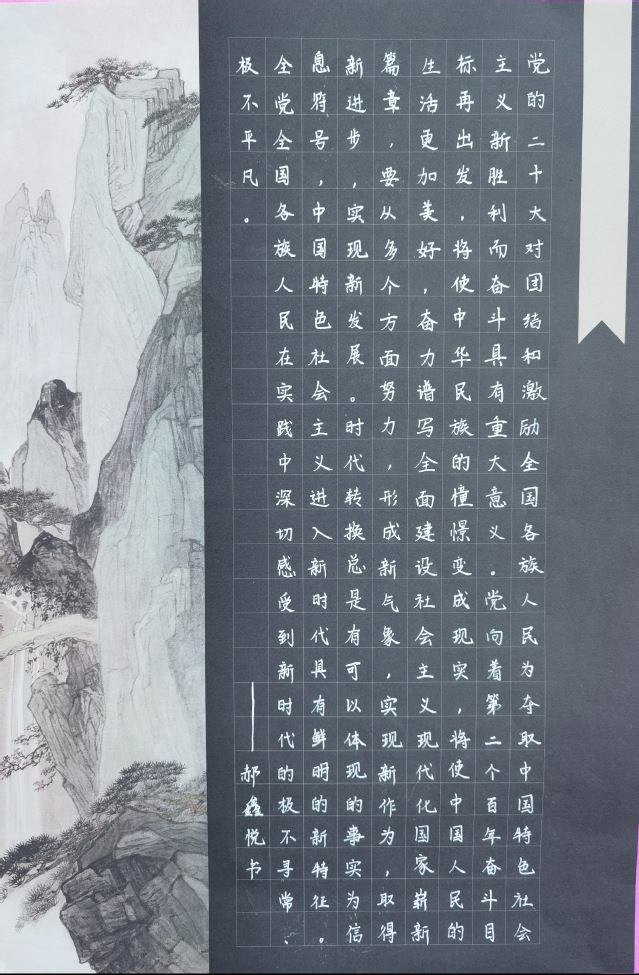 党的二十大对团结和激励全国各族人民为夺取中国特色社会
主义新胜利而奋斗具有重大意义。党向着第二个百年奋斗目
标再出发，将使中华民族的憧憬变成现实，将使中国人民的
生活更加美好，奋力谱写全面建设社会主义现代化国家崭新
篇章，要从多个方面努力，形成新气象，实现新作为，取得
新进步，实现新发展。时代转换总是有可以体现的事实为信
息符号，中国特色社会主义进入新时代具有鲜明的新特征。
全党全国各族人民在实践中深切感受到新时代的极不寻常、
极不平凡。
——郝鑫悦书